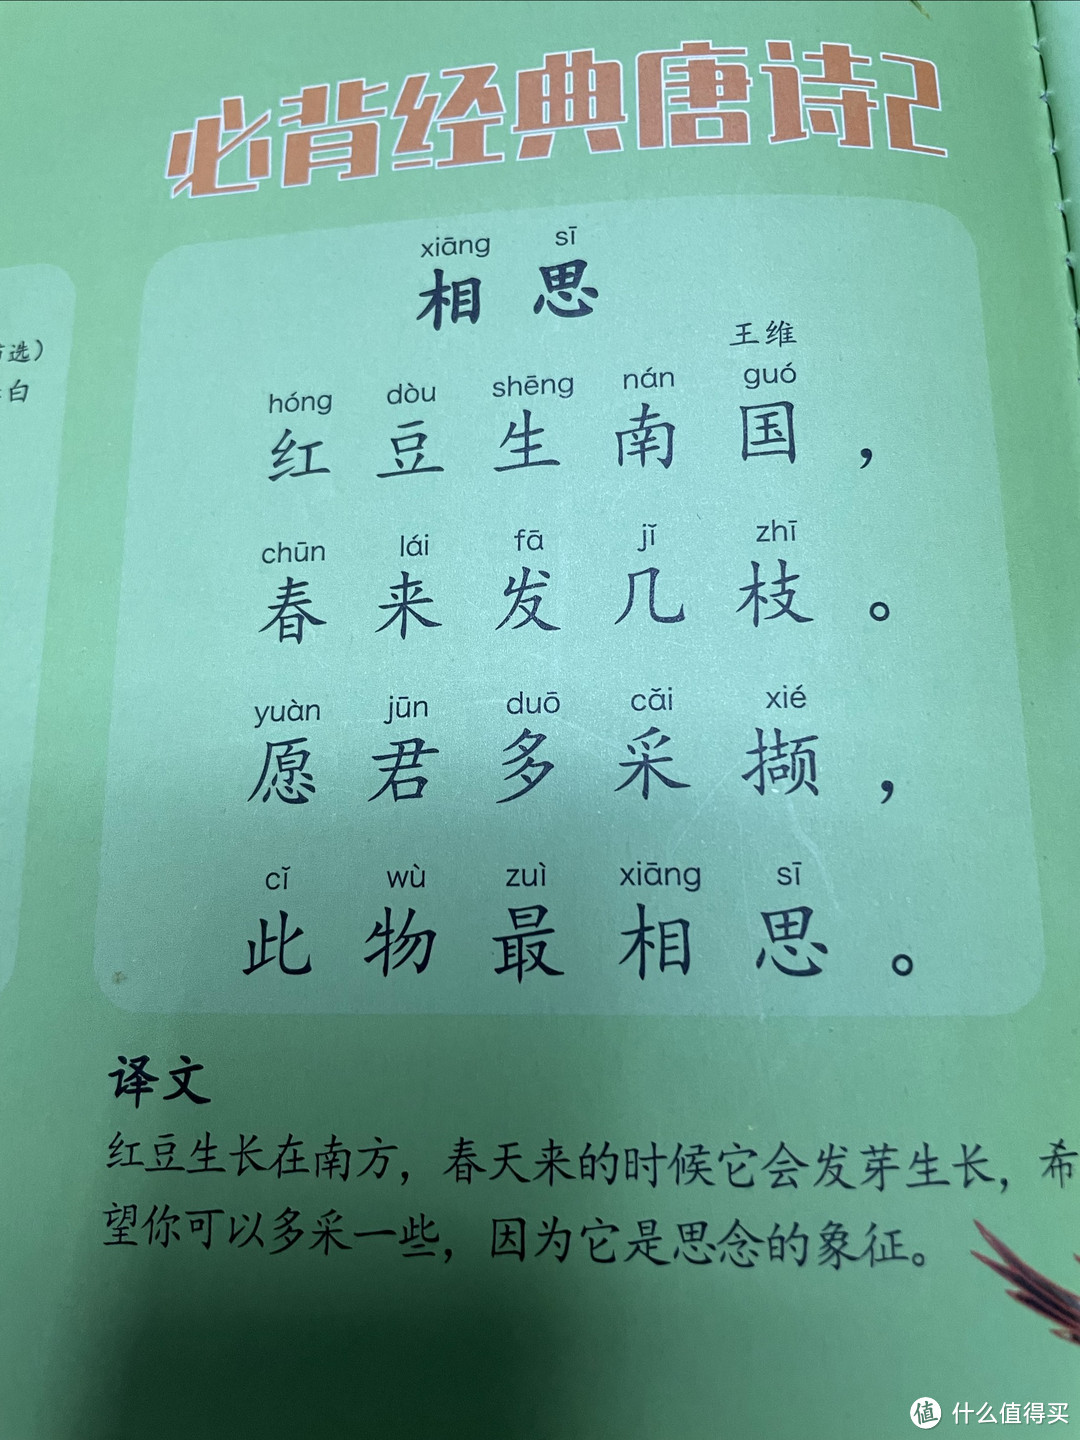 必背经典唐诗2
xiāng sī
相思
王维
hóng dòu shēng nán guó
红豆生南国，
chūn lái fā jǐ zhī
春来发几枝。
yuàn jūn duō cǎi xié
愿君多采撷，
cǐ wù zuì xiāng sī
此物最相思。
译文
红豆生长在南方，春天来的时候它会发芽生长，希
望你可以多采一些，因为它是思念的象征。
选）
白
值 什么值得买